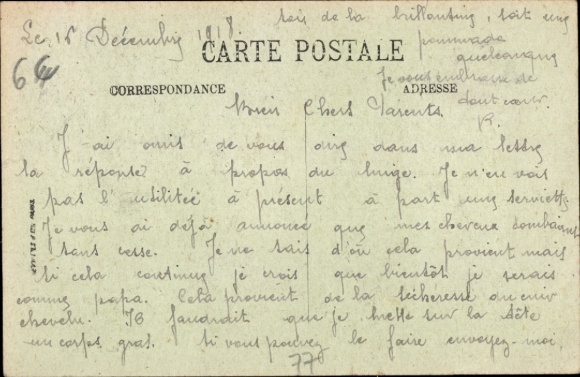 Le 15 Décembre 1918.
CARTE POSTALE
CORRESPONDANCE
ADRESSE
64
Mes Chers Parents.
J'ai omis de vous dire dans ma lettre
la réponse à propos du linge. Je n'en vois
pas l'utilitée à présent à part une serviette.
Je vous ai déjà annoncé que mes cheveux tombaient
sans cesse. Je ne sais d'où cela provient mais
si cela continue je crois que bientôt je serais
comme papa. Cela provient de la sécheresse du cuir
chevelu. Il faudrait que je mette sur la tête
un corps gras. Si vous pouvez le faire envoyez-moi
soit de la brillantine, soit une
pommade
quelconque
Je vous embrasse de
tout cœur.
R.
77